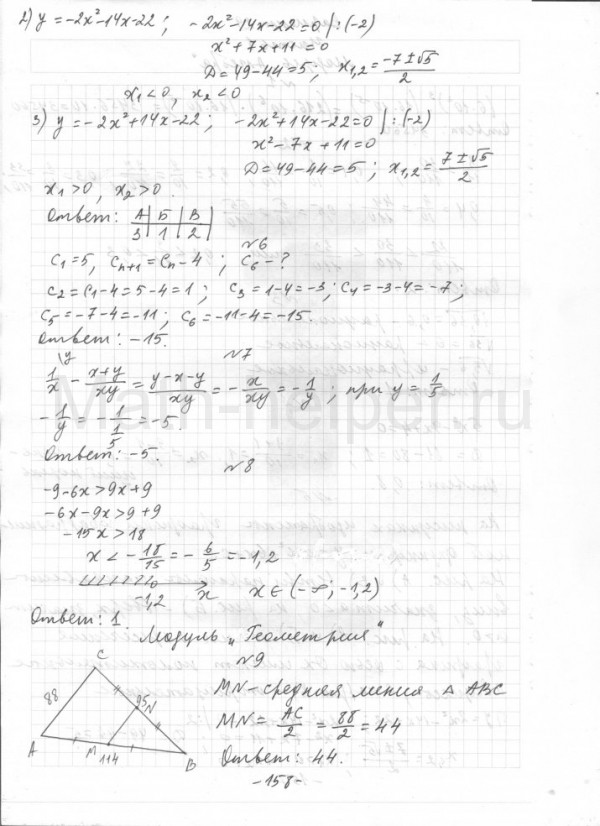 2) y = -2x²-14x-22 ; -2x²-14x-22=0 | :(-2)
x²+7x+11=0
D=49-44=5 ; x₁,₂= (-7±√5)/2
x₁<0, x₂<0
3) y = -2x²+14x-22 ; -2x²+14x-22=0 | :(-2)
x²-7x+11=0
D=49-44=5 ; x₁,₂= (7±√5)/2
x₁>0, x₂>0
Ответ: А|Б|В
3|1|2
№6
C₁=5, Cₙ₊₁=Cₙ-4 ; C₆-?
C₂=C₁-4=5-4=1 ; C₃=1-4=-3; C₄=-3-4=-7;
C₅=-7-4=-11 ; C₆=-11-4=-15.
Ответ: -15.
№7
1/x \y - (x+y)/xy = (y-x-y)/xy = - x/xy = - 1/y ; при y= 1/5
- 1/y = - 1/(1/5) = -5.
Ответ: -5.
№8
-9-6x>9x+9
-6x-9x>9+9
-15x>18
x < - 18/15 = - 6/5 = -1,2
-1,2 x x∈(-∞;-1,2)
Ответ: 1.
Модуль „Геометрия"
№9
C
88 95 N
A M 114 B
MN-средняя линия △ ABC
MN= AC/2 = 88/2 = 44
Ответ: 44.
-158-
Math-helper.ru